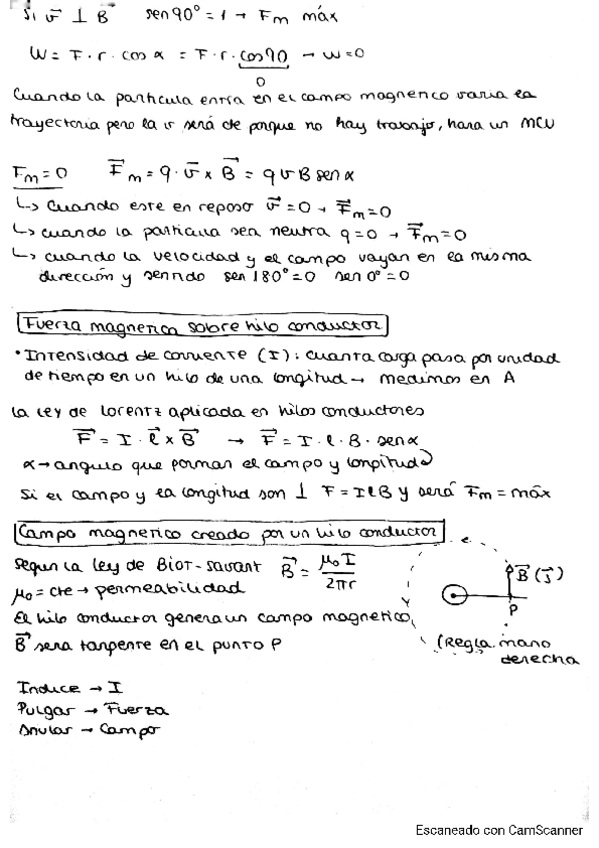 Si v⃗ ⊥ B⃗ sen90° = 1 → Fm máx
W = F · r · cos α = F · r · cos90 → W=0
0
Cuando la particula entra en el campo magnetico varia la
trayectoria pero la v será cte porque no hay trabajo, hara un MCU
Fm=0 F⃗m = q · v⃗ x B⃗ = q v B sen α
↳ Cuando este en reposo v⃗ = 0 → F⃗m = 0
↳ cuando la particula sea neutra q=0 → F⃗m = 0
↳ cuando la velocidad y el campo vayan en la misma
dirección y sentido sen 180° = 0 sen 0° = 0
Fuerza magnetica sobre hilo conductor
• Intensidad de corriente (I): cuanta carga pasa por unidad
de tiempo en un hilo de una longitud → medimos en A
la Ley de Lorentz aplicada en hilos conductores
F⃗ = I · l⃗ x B⃗ → F⃗ = I · l · B · sen α
α → angulo que forman el campo y longitud
Si el campo y la longitud son ⊥ F = I l B y será F⃗m = máx
Campo magnetico creado por un hilo conductor
Segun la ley de Biot-savart B⃗ = μ₀ I / 2πr
μ₀ = cte → permeabilidad
B⃗ (j⃗)
P
El hilo conductor genera un campo magnetico,
B⃗ sera tangente en el punto P
(Regla mano
derecha
Indice → I
Pulgar → Fuerza
Anular → Campo
Escaneado con CamScanner